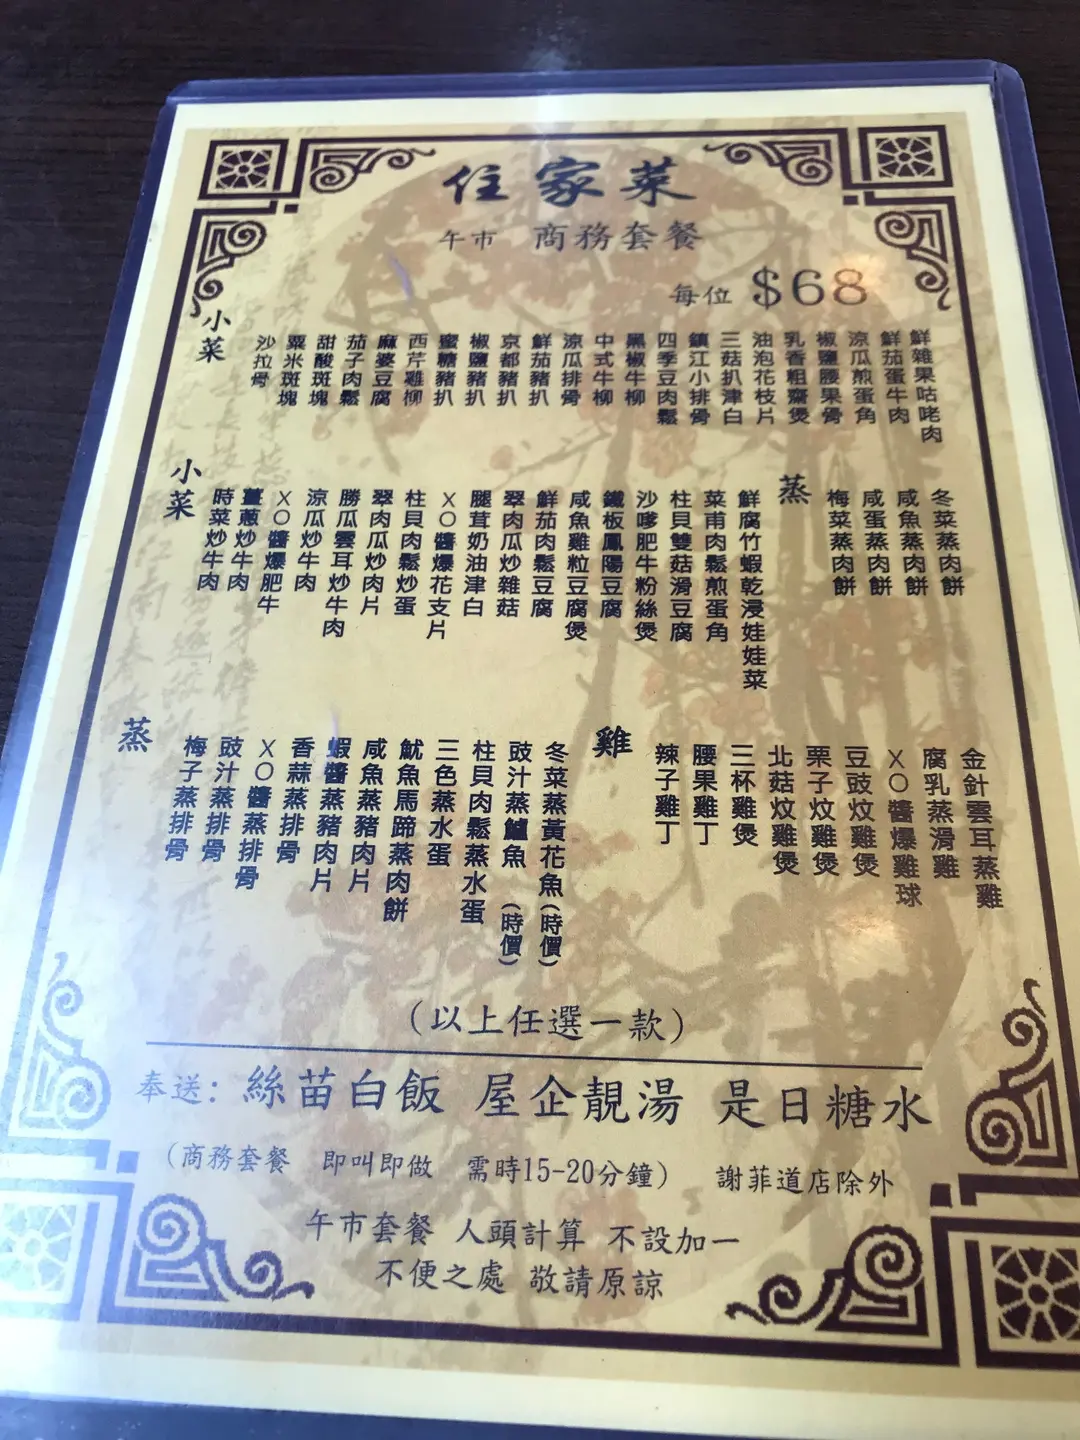 住家菜
午市 商務套餐
每位 $68
小菜
沙拉骨
粟米斑塊
甜酸斑塊
茄子肉鬆
麻婆豆腐
西芹雞柳
蜜糖豬扒
椒鹽豬扒
京都豬扒
鮮茄豬扒
涼瓜排骨
中式牛柳
黑椒牛柳
四季豆肉鬆
鎮江小排骨
三菇扒津白
油泡花枝片
乳香粗齋煲
椒鹽腰果骨
涼瓜煎蛋角
鮮茄蛋牛肉
鮮雜果咕咾肉
小菜
時菜炒牛肉
薑蔥炒牛肉
XO醬爆肥牛
涼瓜炒牛肉
勝瓜雲耳炒牛肉
翠肉瓜炒肉片
柱貝肉鬆炒蛋
XO醬爆花支片
腿茸奶油津白
翠肉瓜炒雜菇
鮮茄肉鬆豆腐
咸魚雞粒豆腐煲
鐵板鳳陽豆腐
沙嗲肥牛粉絲煲
柱貝雙菇滑豆腐
菜甫肉鬆煎蛋角
鮮腐竹蝦乾浸娃娃菜
蒸
梅菜蒸肉餅
咸蛋蒸肉餅
咸魚蒸肉餅
冬菜蒸肉餅
蒸
梅子蒸排骨
豉汁蒸排骨
XO醬蒸排骨
香蒜蒸排骨
蝦醬蒸豬肉片
咸魚蒸豬肉片
魷魚馬蹄蒸肉餅
三色蒸水蛋
柱貝肉鬆蒸水蛋
豉汁蒸鱸魚(時價)
冬菜蒸黃花魚(時價)
雞
辣子雞丁
腰果雞丁
三杯雞煲
北菇炆雞煲
栗子炆雞煲
豆豉炆雞煲
XO醬爆雞球
腐乳蒸滑雞
金針雲耳蒸雞
(以上任選一款)
奉送: 絲苗白飯 屋企靚湯 是日糖水
(商務套餐 即叫即做 需時15-20分鐘) 謝菲道店除外
午市套餐 人頭計算 不設加一
不便之處 敬請原諒